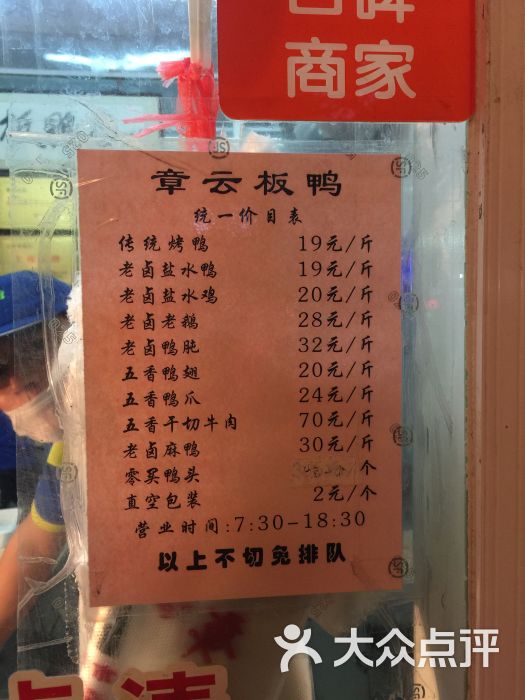 口碑
商家
章云板鸭
统一价目表
传统烤鸭 19元/斤
老卤盐水鸭 19元/斤
老卤盐水鸡 20元/斤
老卤老鹅 28元/斤
老卤鸭肫 32元/斤
五香鸭翅 20元/斤
五香鸭爪 24元/斤
五香干切牛肉 70元/斤
老卤麻鸭 30元/斤
零买鸭头 个
真空包装 2元/个
营业时间:7:30-18:30
以上不切免排队
大众点评